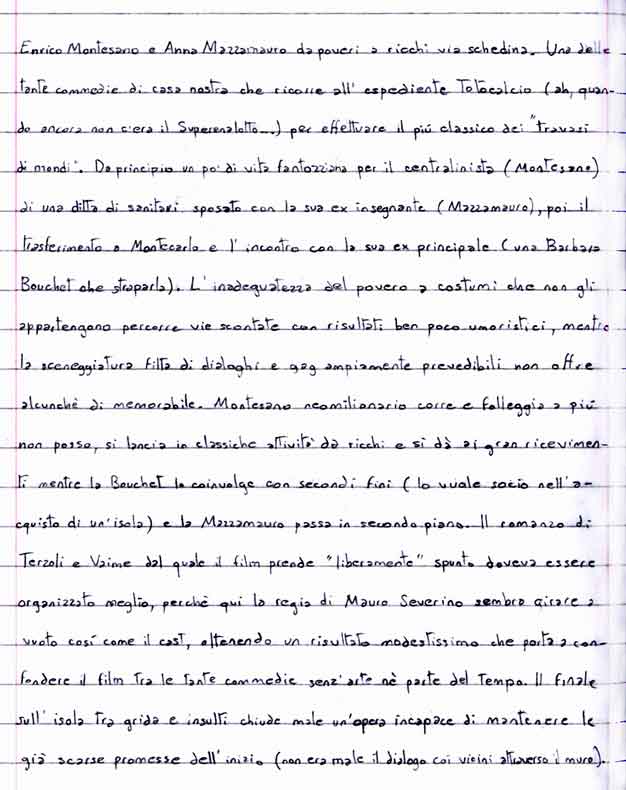 Enrico Montesano e Anna Mazzamauro da poveri a ricchi via schedina. Una delle
tante commedie di casa nostra che ricorre all' espediente Totocalcio (ah, quan-
do ancora non c'era il Superenalotto...) per effettuare il più classico dei "travasi
di mondi". Da principio un po' di vita fantozziana per il centralinista (Montesano)
di una ditta di sanitari sposato con la sua ex insegnante (Mazzamauro), poi il
trasferimento a Montecarlo e l' incontro con la sua ex principale (una Barbara
Bouchet che straparla). L' inadeguatezza del povero a costumi che non gli
appartengono percorre vie scontate con risultati ben poco umoristici, mentre
la sceneggiatura fitta di dialoghi e gag ampiamente prevedibili non offre
alcunchè di memorabile. Montesano neomilionario corre e folleggia a più
non posso, si lancia in classiche attività da ricchi e si dà ai gran ricevimen-
ti mentre la Bouchet lo coinvolge con secondi fini (lo vuole socio nell'a-
cquisto di un'isola) e la Mazzamauro passa in secondo piano. Il romanzo di
Terzoli e Vaime dal quale il film prende "liberamente" spunto doveva essere
organizzato meglio, perchè qui la regia di Mauro Severino sembra girare a
vuoto così come il cast, ottenendo un risultato modestissimo che porta a con-
fondere il film tra le tante commedie senz'arte nè parte del Tempo. Il finale
sull' isola tra grida e insulti chiude male un'opera incapace di mantenere le
già scarse promesse dell'inizio (non era male il dialogo coi vicini attraverso il muro).